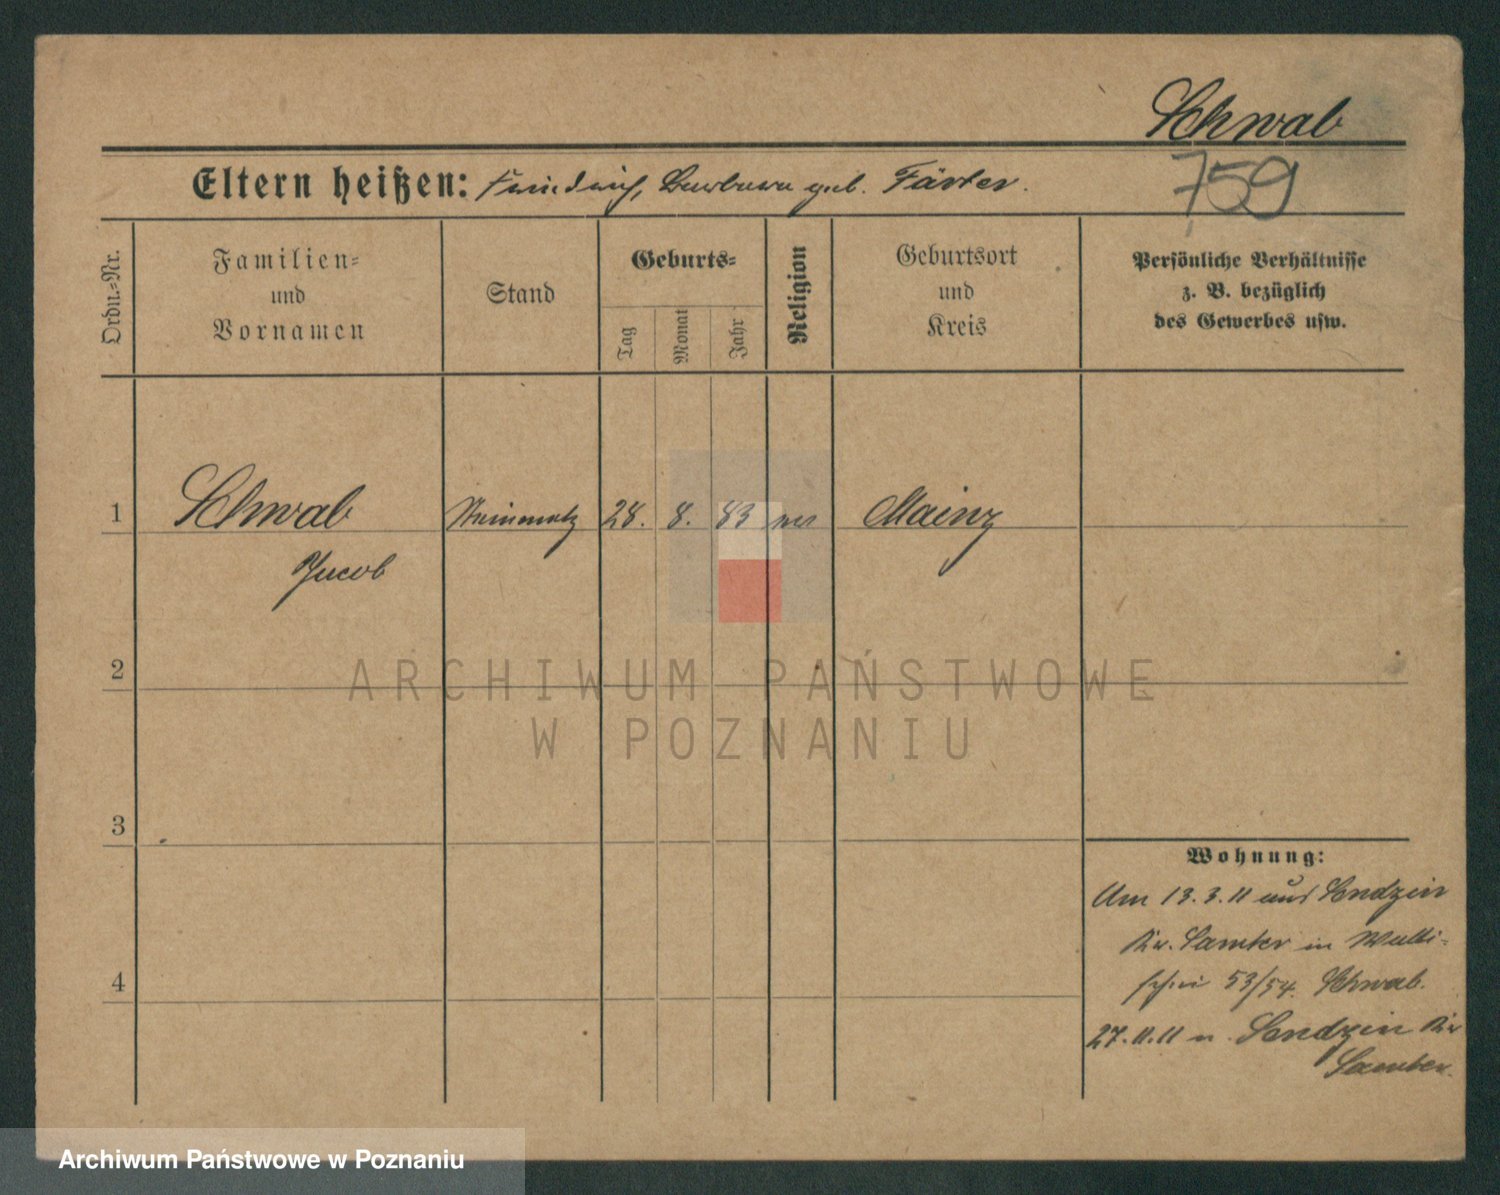 Schwab
Eltern heißen: Friedrich, Barbara geb. Färber.
759
Ordn.-Nr.
Familien-
und
Vornamen
Stand
Geburts-
Tag
Monat
Jahr
Religion
Geburtsort
und
Kreis
Persönliche Verhältnisse
z. B. bezüglich
des Gewerbes usw.
1
Schwab
Steinmetz
28. 8. 83
Mainz
Jacob
2
ARCHIWUM PAŃSTWOWE
W POZNANIU
3
Wohnung:
Am 13.3.11 aus Sendzin
Kr. Samter in Walli-
schei 53/54. Schwab.
4
27.11.11 n. Sendzin Kr
Samter.
Archiwum Państwowe w Poznaniu